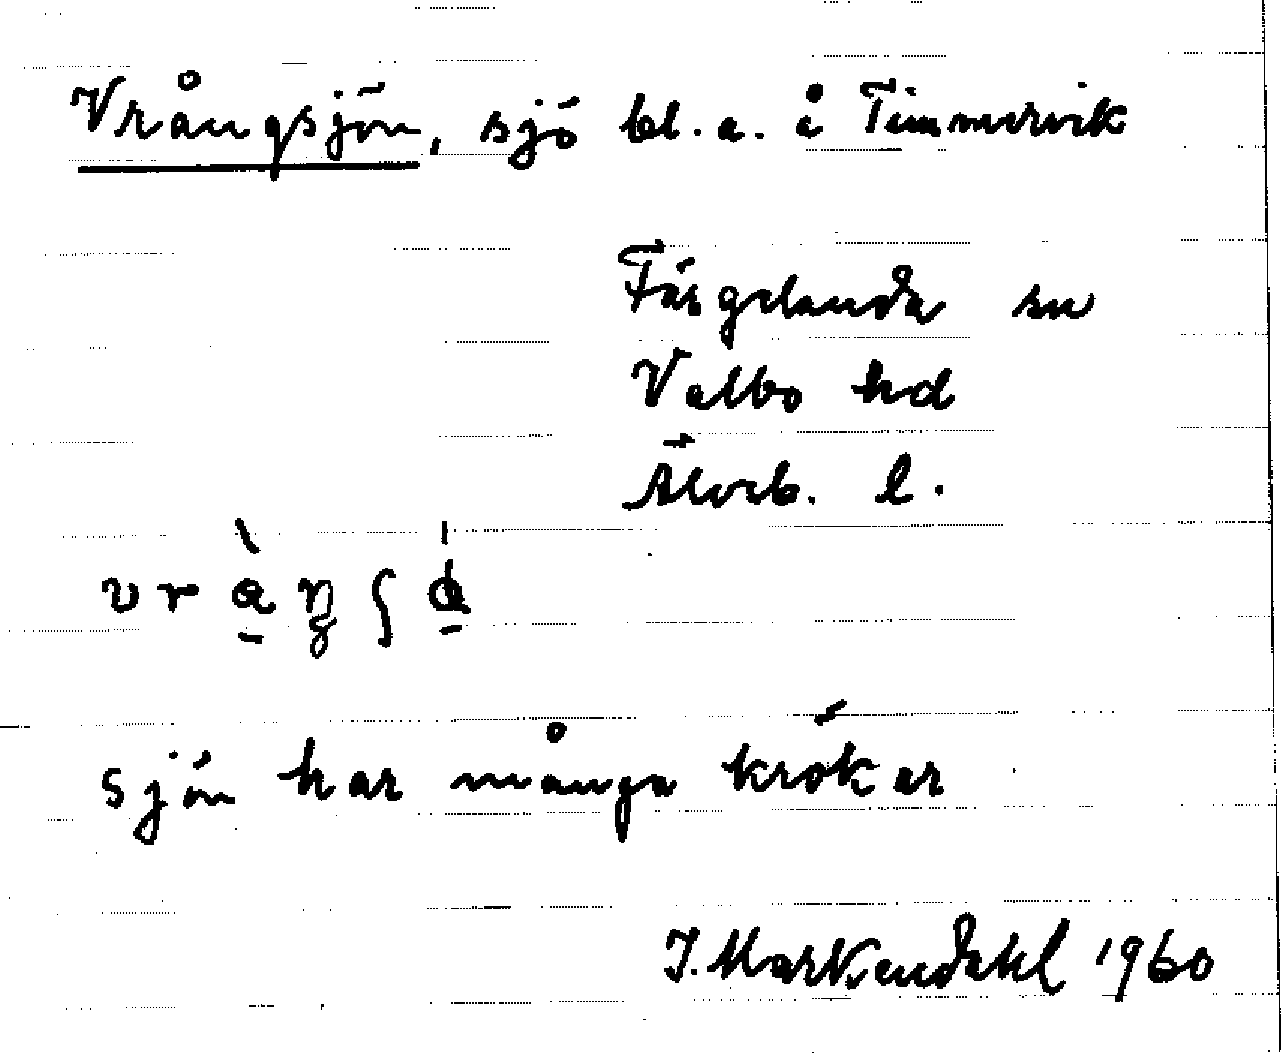 Vrångsjön, sjö bl. a. å Timmervik
Färgelanda sn
Valbo hd
Älvsb. l.
sjön har många krökar
J. Markendahl 1960